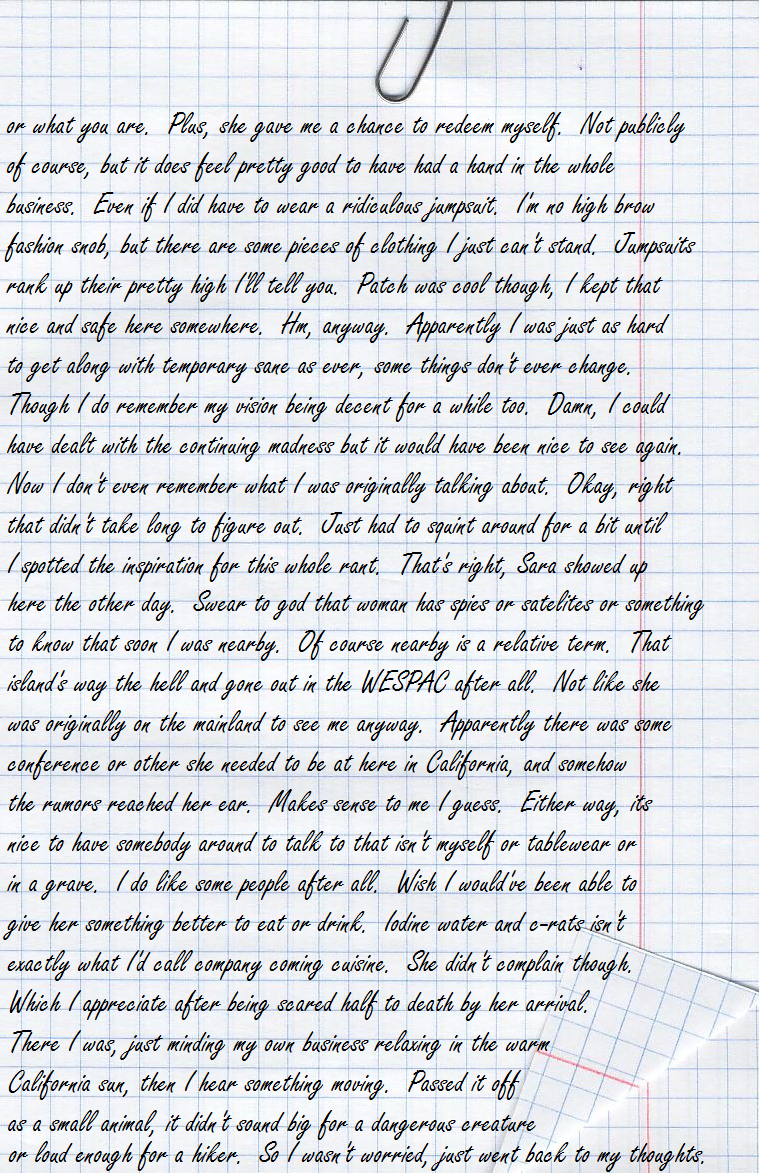 or what you are. Plus, she gave me a chance to redeem myself. Not publicly
of course, but it does feel pretty good to have had a hand in the whole
business. Even if I did have to wear a ridiculous jumpsuit. I'm no high brow
fashion snob, but there are some pieces of clothing I just can't stand. Jumpsuits
rank up their pretty high I'll tell you. Patch was cool though, I kept that
nice and safe here somewhere. Hm, anyway. Apparently I was just as hard
to get along with temporary sane as ever, some things don't ever change.
Though I do remember my vision being decent for a while too. Damn, I could
have dealt with the continuing madness but it would have been nice to see again.
Now I don't even remember what I was originally talking about. Okay, right
that didn't take long to figure out. Just had to squint around for a bit until
I spotted the inspiration for this whole rant. That's right, Sara showed up
here the other day. Swear to god that woman has spies or satelites or something
to know that soon I was nearby. Of course nearby is a relative term. That
island's way the hell and gone out in the WESPAC after all. Not like she
was originally on the mainland to see me anyway. Apparently there was some
conference or other she needed to be at here in California, and somehow
the rumors reached her ear. Makes sense to me I guess. Either way, its
nice to have somebody around to talk to that isn't myself or tablewear or
in a grave. I do like some people after all. Wish I would've been able to
give her something better to eat or drink. Iodine water and c-rats isn't
exactly what I'd call company coming cuisine. She didn't complain though.
Which I appreciate after being scared half to death by her arrival.
There I was, just minding my own business relaxing in the warm
California sun, then I hear something moving. Passed it off
as a small animal, it didn't sound big for a dangerous creature
or loud enough for a hiker. So I wasn't worried, just went back to my thoughts.